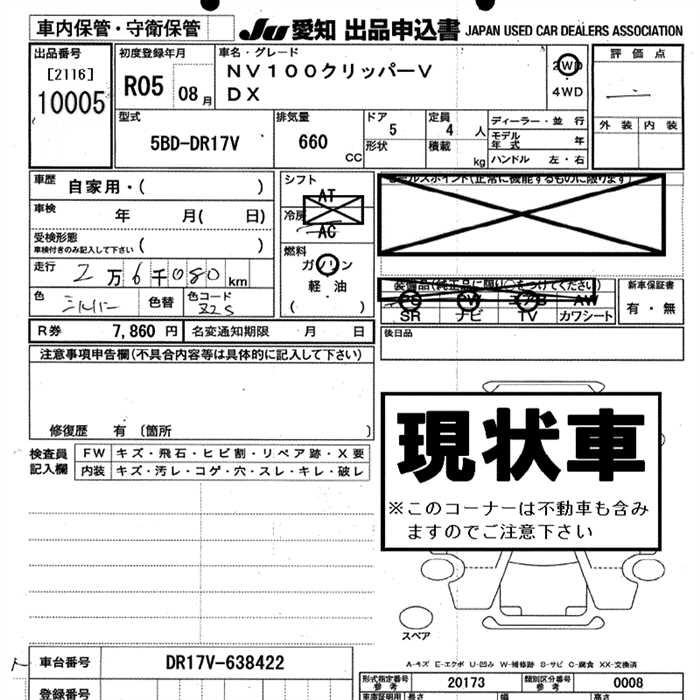 車内保管・守衛保管 JU 愛知 出品申込書 JAPAN USED CAR DEALERS ASSOCIATION
出品番号
[2116]
10005
初度登録年月
R05 08月
車名・グレード
NV100クリッパーV
DX
2WD
4WD
評価点
外装 内装
型式
5BD-DR17V
排気量
660 CC
ドア
5
形状
定員
4 人
積載
kg
ディーラー・並行
モデル年式 年
ハンドル 左・右
車歴 自家用・( )
車検 年 月( 日)
受検形態
車検付きのみ記入して下さい ( )
走行 2万6千080km
色 シルバー 色替 色コード
シフト
AT
冷房
AC
燃料
ガソリン
軽油
( )
セールスポイント(正常に機能するものに限ります)
装備品(純正品に限り○をつけてください)
PS PW エアB AW
SR ナビ TV カワシート
新車保証書
有・無
R券 7,860円 名変通知期限 月 日
後日品
注意事項申告欄(不具合内容等は具体的に記入して下さい)
修復歴 有 〔箇所 〕
検査員記入欄
FW キズ・飛石・ヒビ割・リペア跡・X要
内装 キズ・汚レ・コゲ・穴・スレ・キレ・破レ
現状車
※このコーナーは不動車も含み
ますのでご注意下さい
スペア
A-キズ E-エクボ U-凹み W-補修跡 S-サビ C-腐食 XX-交換済
車台番号 DR17V-638422
登録番号
形式指定番号 参考 20173 類別区分番号 参考 0008
車庫証明用 長さ 幅 高さ